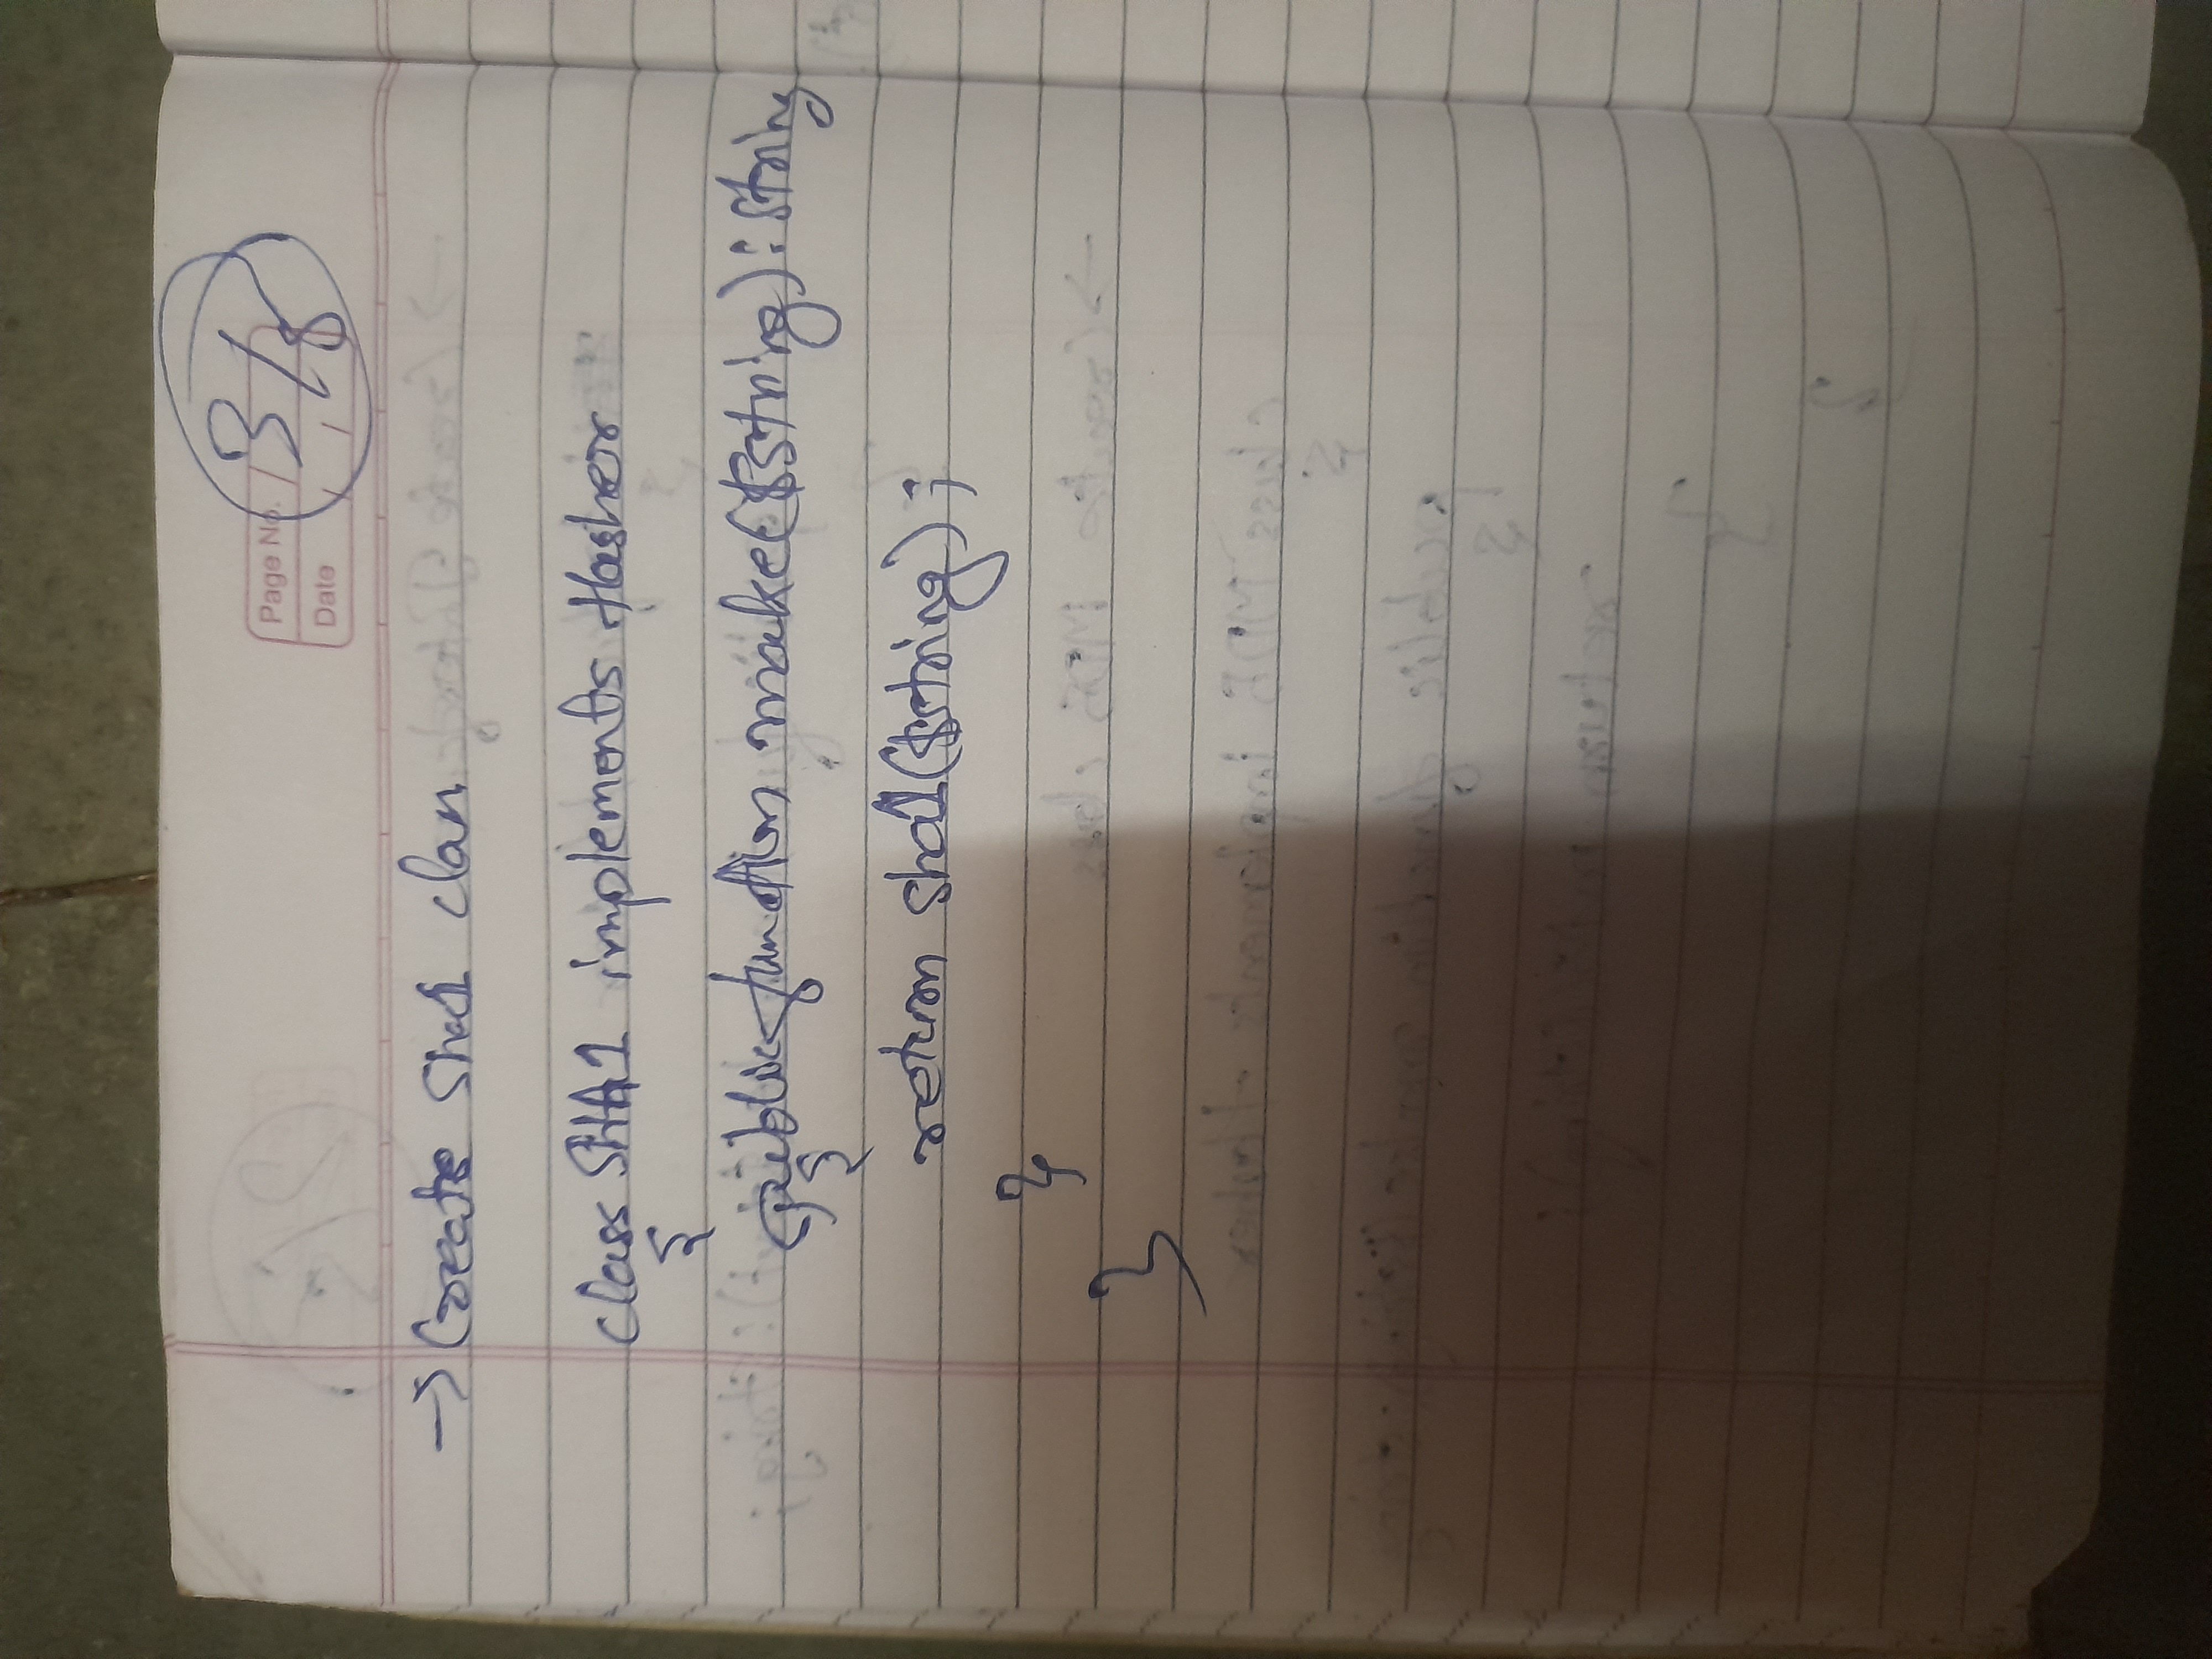 Page No.
3/8
Date
→ Create Sha1 class
class SHA1 implements Hasher
{
public function make($string): String
{
return sha1($string);
}
}